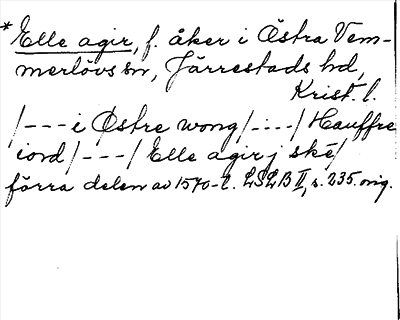 *Elle agir, f. åker i Östra Vem-
merlövs sn, Järrestads hd,
Krist. l.
/---i Østre wong/-:--/ Hauffre
iord/---/ Elle agir j ské/
förra delen av 1570-t. LSLB II, s. 235. orig.